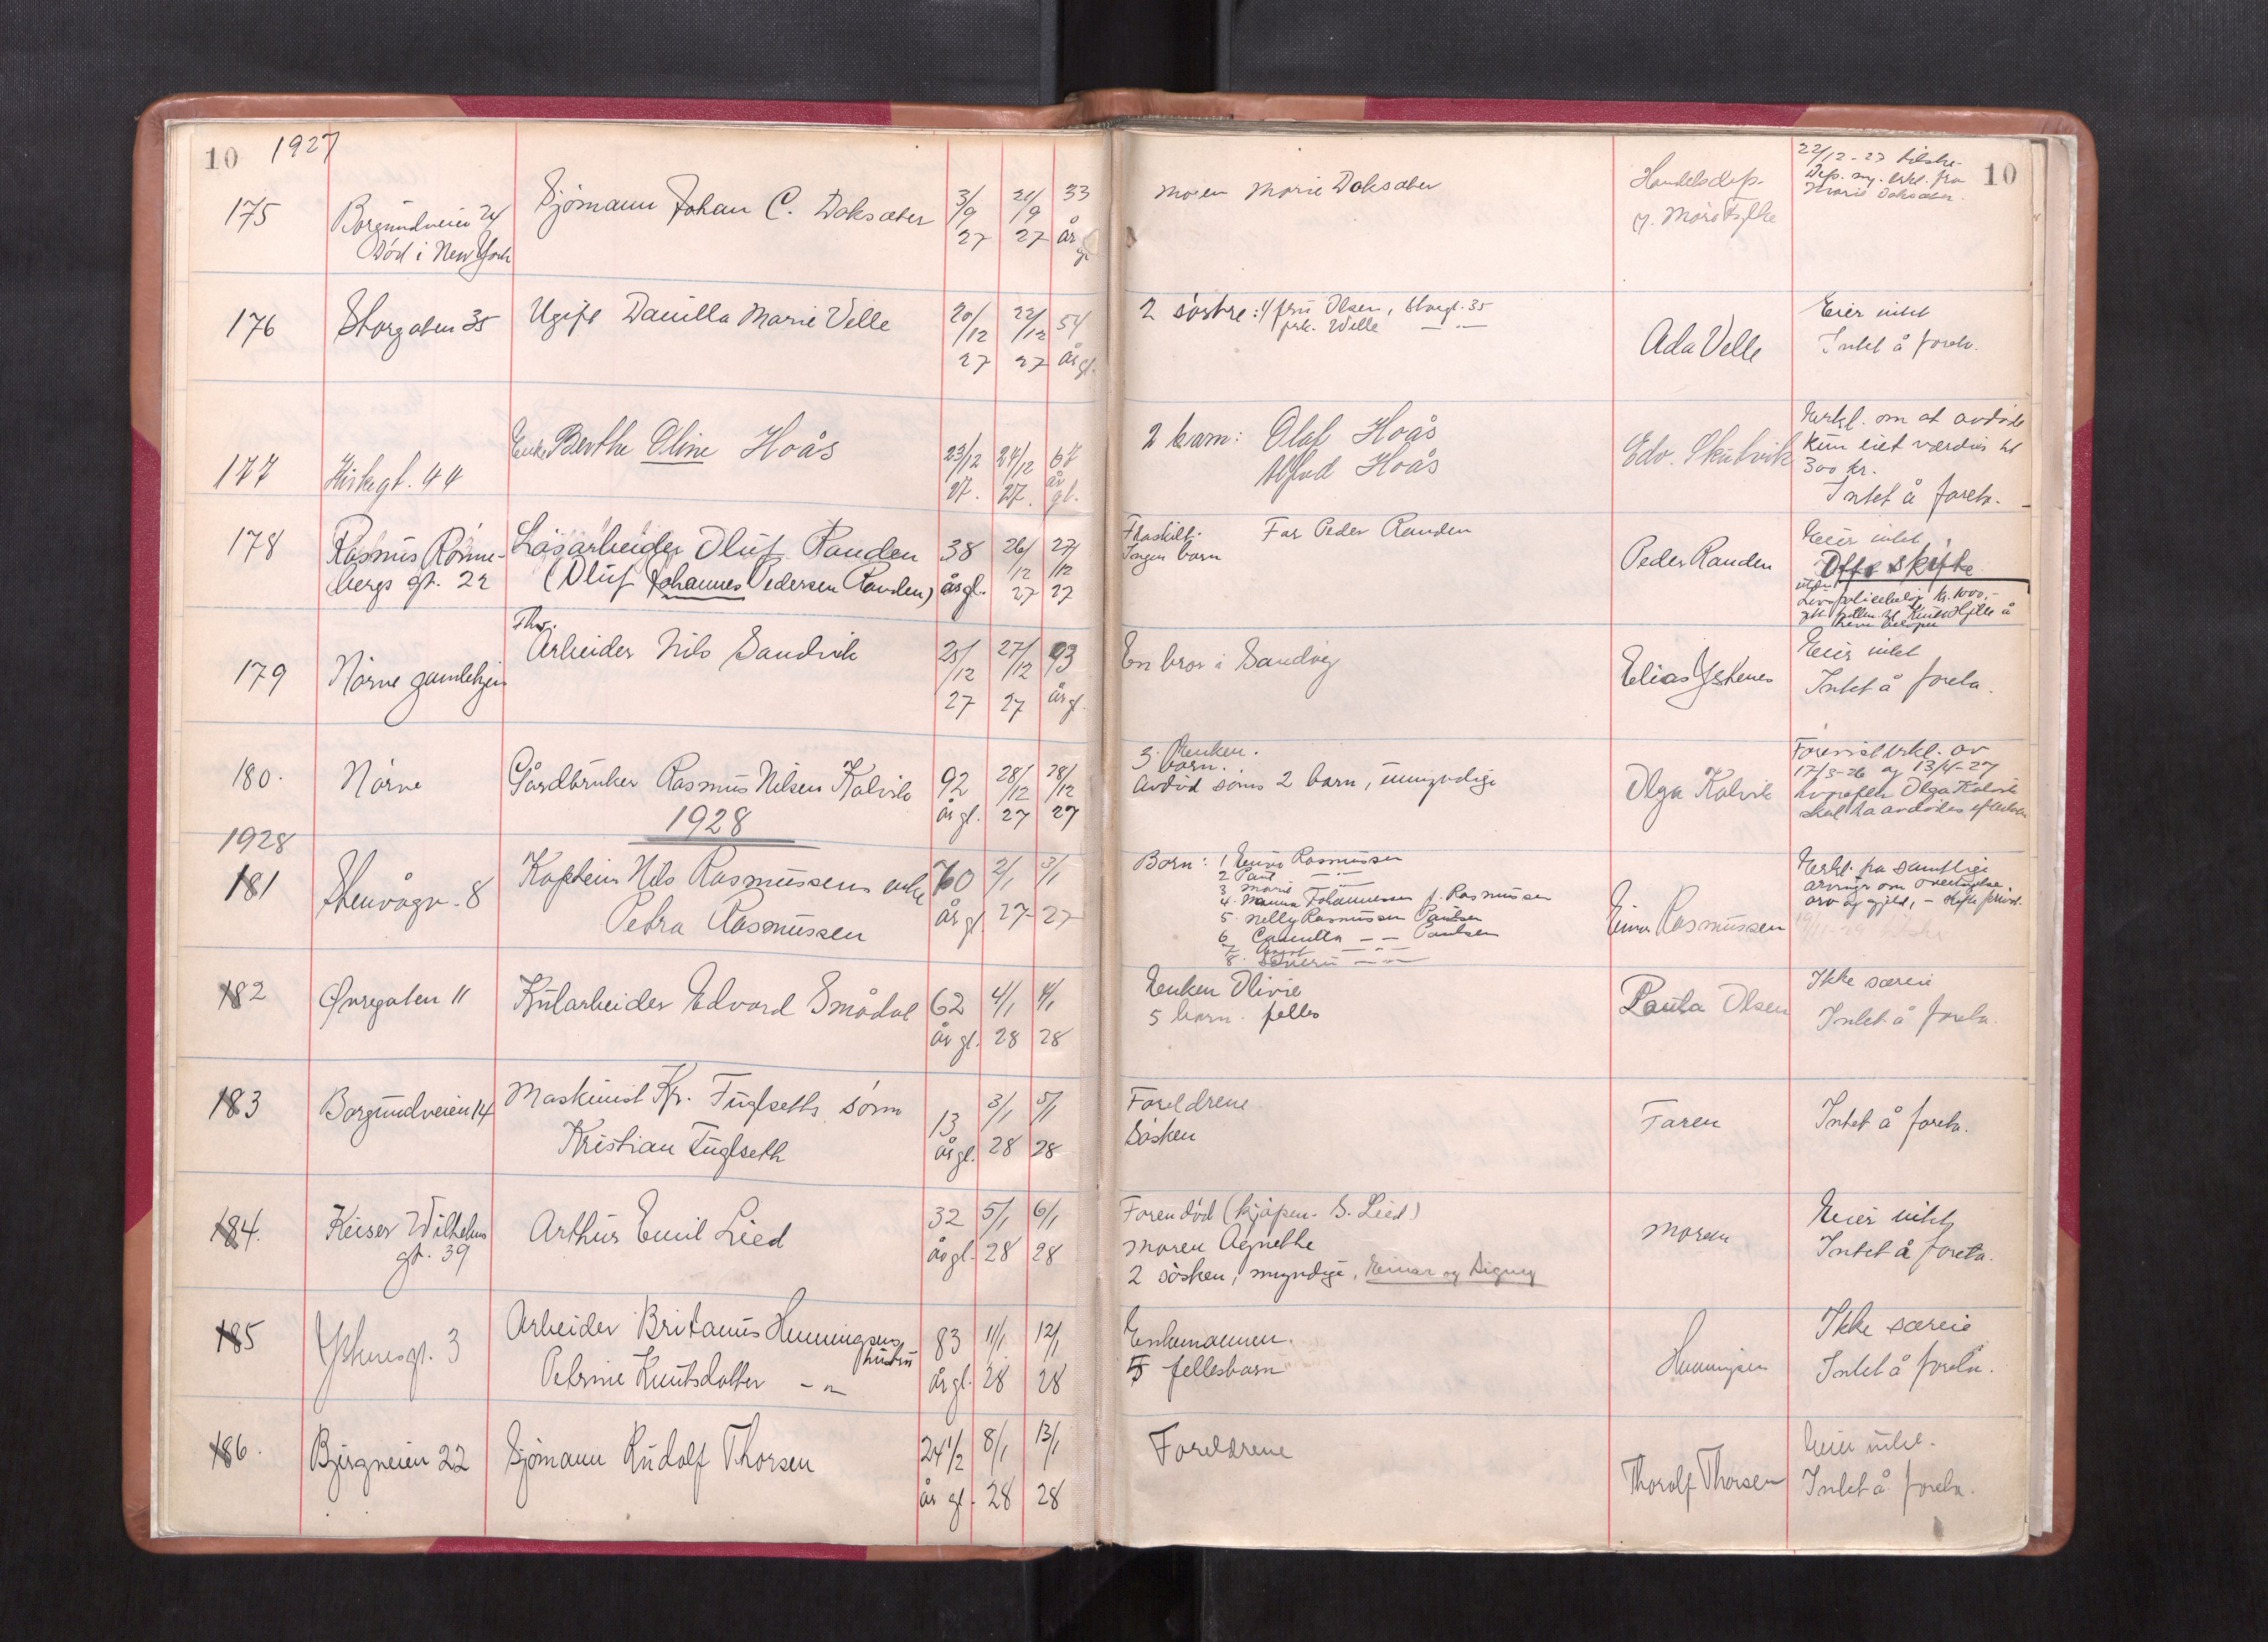 10 1927
175 Borgundveien 24 Sjømann Johan C. Doksæter 3/9 21/9 33
Død i New York 27 27 år gl
moren Marie Doksæter Handelsdep. 22/12-27 10
g. Møre Fylke Marie Doksæter.
176 Storgaten 35 Ugift Danilla Marie Velle 20/12 22/12 54
27 27 år gl.
2 søstre: 1/ fru Olsen, Storgt. 35 Eier intet
frk. Velle — " — Ada Velle Intet å foreta.
177 Kirkegt. 44 Enke Berthe Oline Hoås 23/12 24/12 67
27. 27. år gl.
2 barn: Olaf Hoås Edv. Skutvik Erkl. om at avdøde
Hoås kun eiet værdier til
300 kr.
Intet å foreta.
178 Rasmus Rønne- Løsarbeider Oluf Randen 38 26/12 27/12
bergs gt. 22 (Oluf Johannes Pedersen Randen) år gl. 27 27
Fraskilt. Far Peder Randen Peder Randen Eier intet
Ingen barn Offe skifte
kr. 1000,-
179 Nørve gamlehjem Fhv.
Arbeider Nils Sandvik 25/12 27/12 93
27 27 år gl.
En bror i Sandvig Elias Ystenes Eier intet
Intet å foreta.
180. Nørve Gårdbruker Rasmus Nilsen Kalvik 92 28/12 28/12
år gl. 27 27
Enken. Olga Kalvik
3 barn. 17/3-26 og 13/4-27
Avdød søns 2 barn, umyndige hvorefter Olga Kalvik
1928
1928
181 Stenvågv. 8 Kaptein Nils Rasmussens enke 70 2/1 3/1
Petra Rasmussen år gl 27 27
Barn: 1 Einar Rasmussen Einar Rasmussen Erkl. fra samtlige
2 Paul — " — arvinger om overtagelse
3 Marie — " — arv og gjeld, - skifte privat.
4. Johannessen f. Rasmussen
5. Nelly Rasmussen Paulsen
6 Camilla — — Paulsen
7
8.
182 Øvregaten 11 Kularbeider Edvard Smådal 62 4/1 4/1
år gl. 28 28
Enken Olivie Paula Olsen Ikke særeie
5 barn. felles Intet å foreta.
183 Borgundveien 14 Maskinist Kr. Fuglseths sønn 13 3/1 5/1
Kristian Fuglseth år gl. 28 28
Foreldrene Faren Intet å foreta.
Søsken
184. Keiser Wilhelms Arthur Emil Lied 32 5/1 6/1
gt. 39 år gl. 28 28
Faren død (kjøpm. S. Lied) moren Eier intet
Moren Agnethe Intet å foreta.
2 søsken, myndige, Einar og Sigurg
185 Ystenesgt. 3 Arbeider Britanus Henningsens hustru 83 11/1 12/1
Petrine Knutsdatter — " — år gl. 28 28
Enkemannen. Henningsen Ikke særeie
5 fellesbarn Intet å foreta.
186. Bjørgveien 22 Sjømann Rudolf Thorsen 24 1/2 8/1 13/1
år gl. 28 28
Foreldrene Thorolf Thorsen Eier intet.
Intet å foreta.